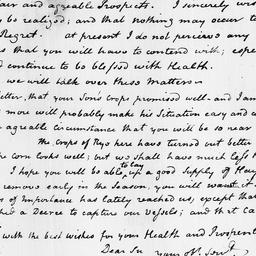 air and agreable Prospects. I sincerely wish
y be realized; and that nothing may occur to
Regret. at present I do not perceive any
s that you will have to contend with; espe
d continue to be blessed with Health.
we will talk over these Matters
etter, that your Son's crops promised well - and I am
more will probably make his Situation easy and c
agreable circumstance that you will be so near
The crops of Rye here have turned out better
he corn looks well; but we shall have much less
I hope you will be able, to lay up a good Supply of Hay
remove early in the Season, you will want it
of Importance has lately reached us, except that
hed a Decree to capture our Vessels; and that Ca
with the best wishes for your Health and Prosperit
Dear Sir
your Ob. Servt.